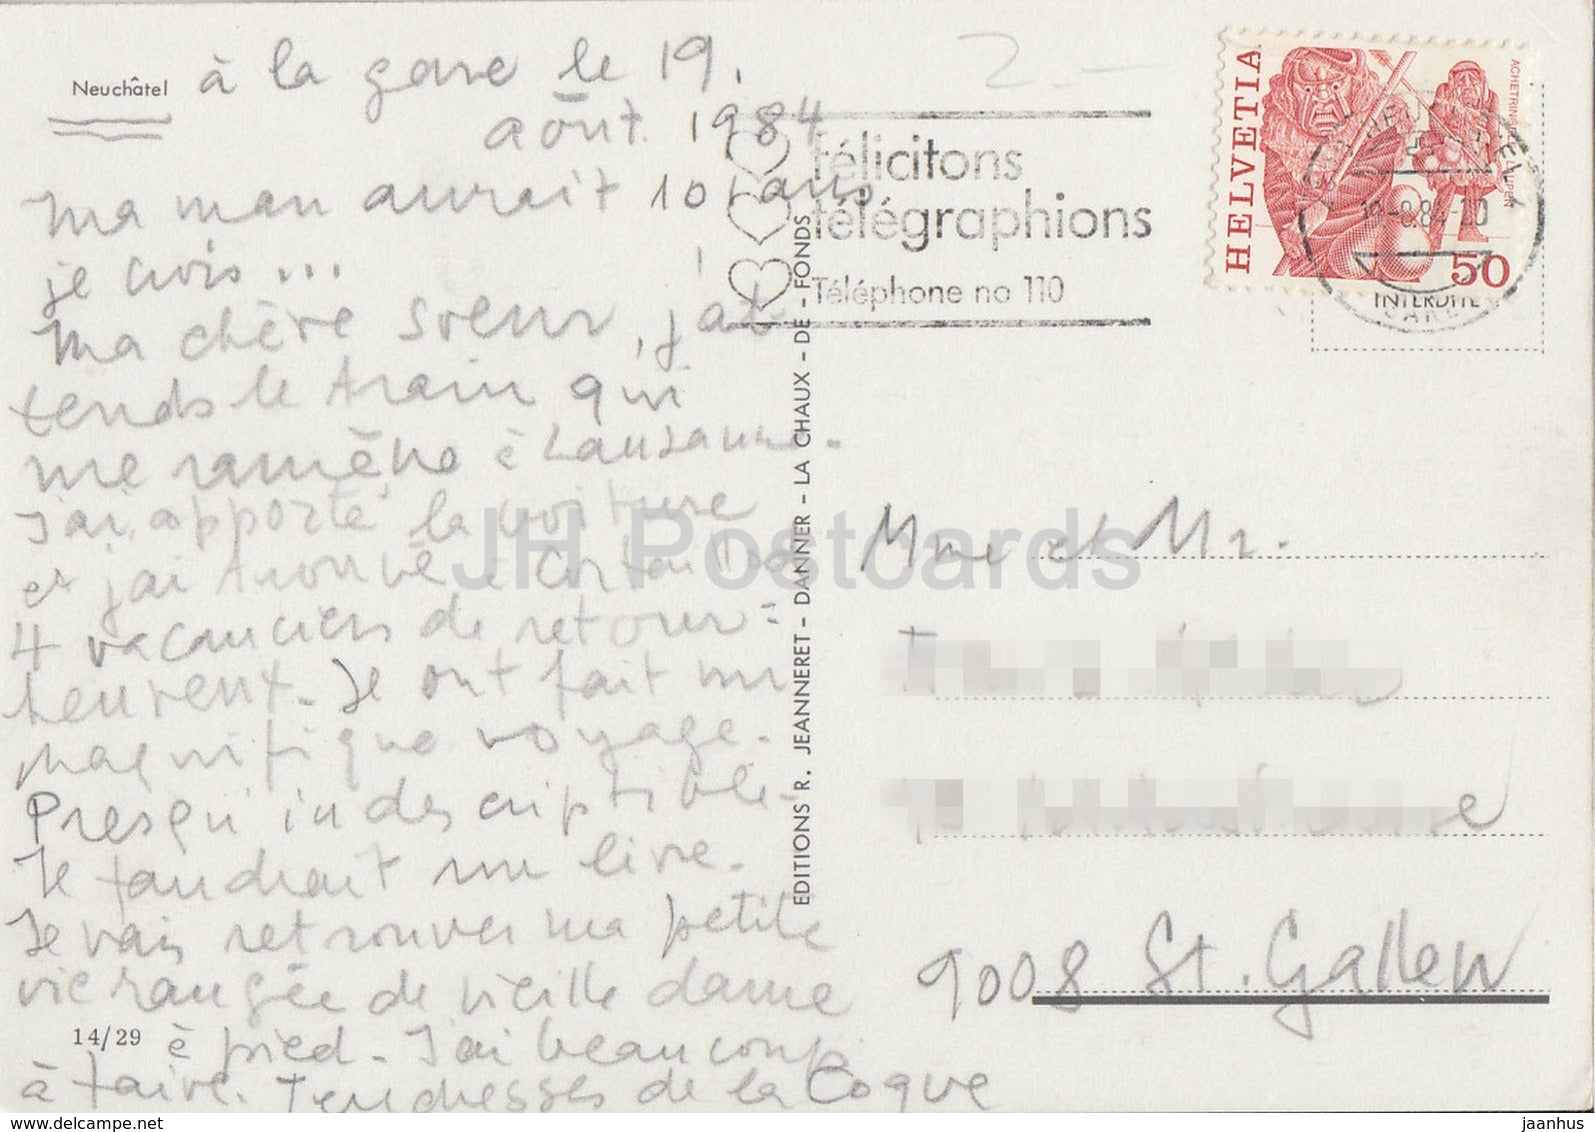 Neuchâtel
à la gare le 19.
août 1984
Maman aurait 101 ans
je crois...
Ma chère soeur, j'at-
tends le train qui
me ramène à Lausanne.
J'ai apporté la voiture
et j'ai trouvé à Cortaillod
4 vacanciers de retour =
heureux. Je ont fait un
magnifique voyage.
Presqu'indescriptible.
Il faudrait un livre.
Je vais retrouver ma petite
vie rangée de vieille dame
à pied. J'ai beaucoup
à faire. Tendresses de la Coque
14/29
EDITIONS R. JEANNERET - DANNER - LA CHAUX - DE - FONDS
2.—
félicitons
télégraphions
Téléphone no 110
HELVETIA
50
19-8.84-20
INTERDITE
Mme et Mr.
9008 St. Gallen
JH Postcards
www.delcampe.net
jaanhus